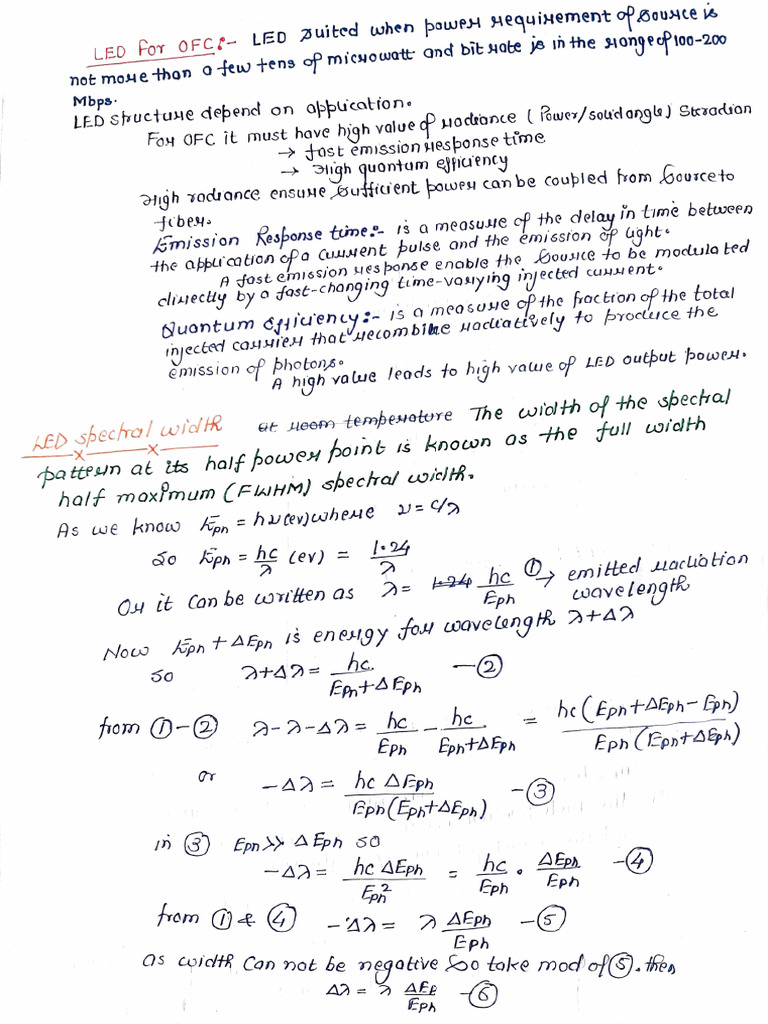 LED for OFC:- LED suited when power requirement of source is
not more than a few tens of microwatt and bit rate is in the range of 100-200
Mbps.
LED structure depend on application.
For OFC it must have high value of radiance (Power/solid angle) Steradian
→ fast emission response time
→ High quantum efficiency
High radiance ensure sufficient power can be coupled from source to
fiber.
Emission Response time:- is a measure of the delay in time between
the application of a current pulse and the emission of light.
A fast emission response enable the source to be modulated
directly by a fast-changing time-varying injected current.
Quantum Efficiency:- is a measure of the fraction of the total
injected carrier that recombine radiatively to produce the
emission of photons.
A high value leads to high value of LED output power.
LED spectral width at room temperature The width of the spectral
pattern at its half power point is known as the full width
half maximum (FWHM) spectral width.
As we know Eph = hν(ev) where ν = c/λ
So Eph = hc/λ (ev) = 1.24/λ
Or it can be written as λ = 1.24 hc/Eph ① → emitted radiation
wavelength
Now Eph + ΔEph is energy for wavelength λ+Δλ
so λ+Δλ = hc/(Eph+ΔEph) —②
from ①-② λ-λ-Δλ = hc/Eph - hc/(Eph+ΔEph) = hc(Eph+ΔEph-Eph)/(Eph(Eph+ΔEph))
or -Δλ = hc ΔEph/(Eph(Eph+ΔEph)) —③
in ③ Eph>> ΔEph so
-Δλ = hc ΔEph/Eph² = hc/Eph . ΔEph/Eph —④
from ① & ④ -Δλ = λ ΔEph/Eph —⑤
as width can not be negative so take mod of ⑤. then
Δλ = λ ΔEp/Eph —⑥